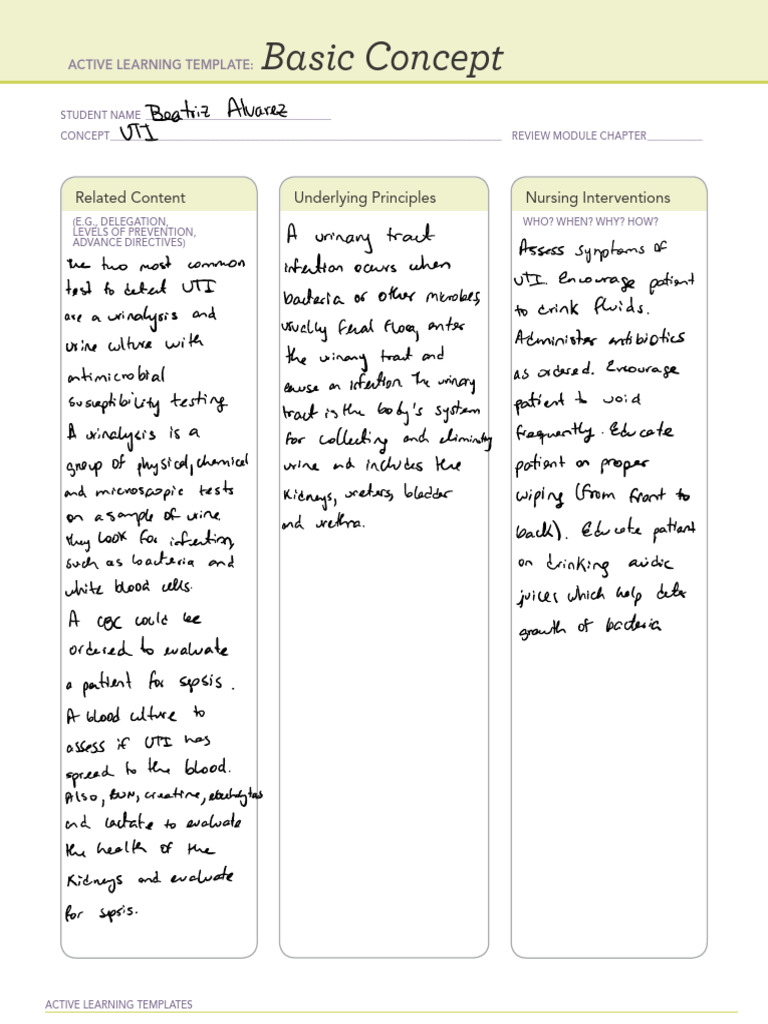 ACTIVE LEARNING TEMPLATE: Basic Concept
STUDENT NAME Beatriz Alvarez
CONCEPT UTI REVIEW MODULE CHAPTER
Related Content
(E.G., DELEGATION,
LEVELS OF PREVENTION,
ADVANCE DIRECTIVES)
The two most common
test to detect UTI
are a urinalysis and
urine culture with
antimicrobial
susceptibility testing
A urinalysis is a
group of physical, chemical
and microscopic tests
on a sample of urine.
they look for infection,
such as bacteria and
white blood cells.
A CBC could be
ordered to evaluate
a patient for sepsis.
A blood culture to
assess if UTI has
spread to the blood.
Also, BUN, creatine, electrolytes
and lactate to evaluate
the health of the
kidneys and evaluate
for sepsis.
Underlying Principles
A urinary tract
infection occurs when
bacteria or other microbes,
usually fecal flora, enter
the urinary tract and
cause an infection. The urinary
tract is the body's system
for collecting and eliminating
urine and includes the
kidneys, ureters, bladder
and urethra.
Nursing Interventions
WHO? WHEN? WHY? HOW?
Assess symptoms of
UTI. Encourage patient
to drink fluids.
Administer antibiotics
as ordered. Encourage
patient to void
frequently. Educate
patient on proper
wiping (from front to
back). Educate patient
on drinking
juices which help deter
growth of bacteria
ACTIVE LEARNING TEMPLATES